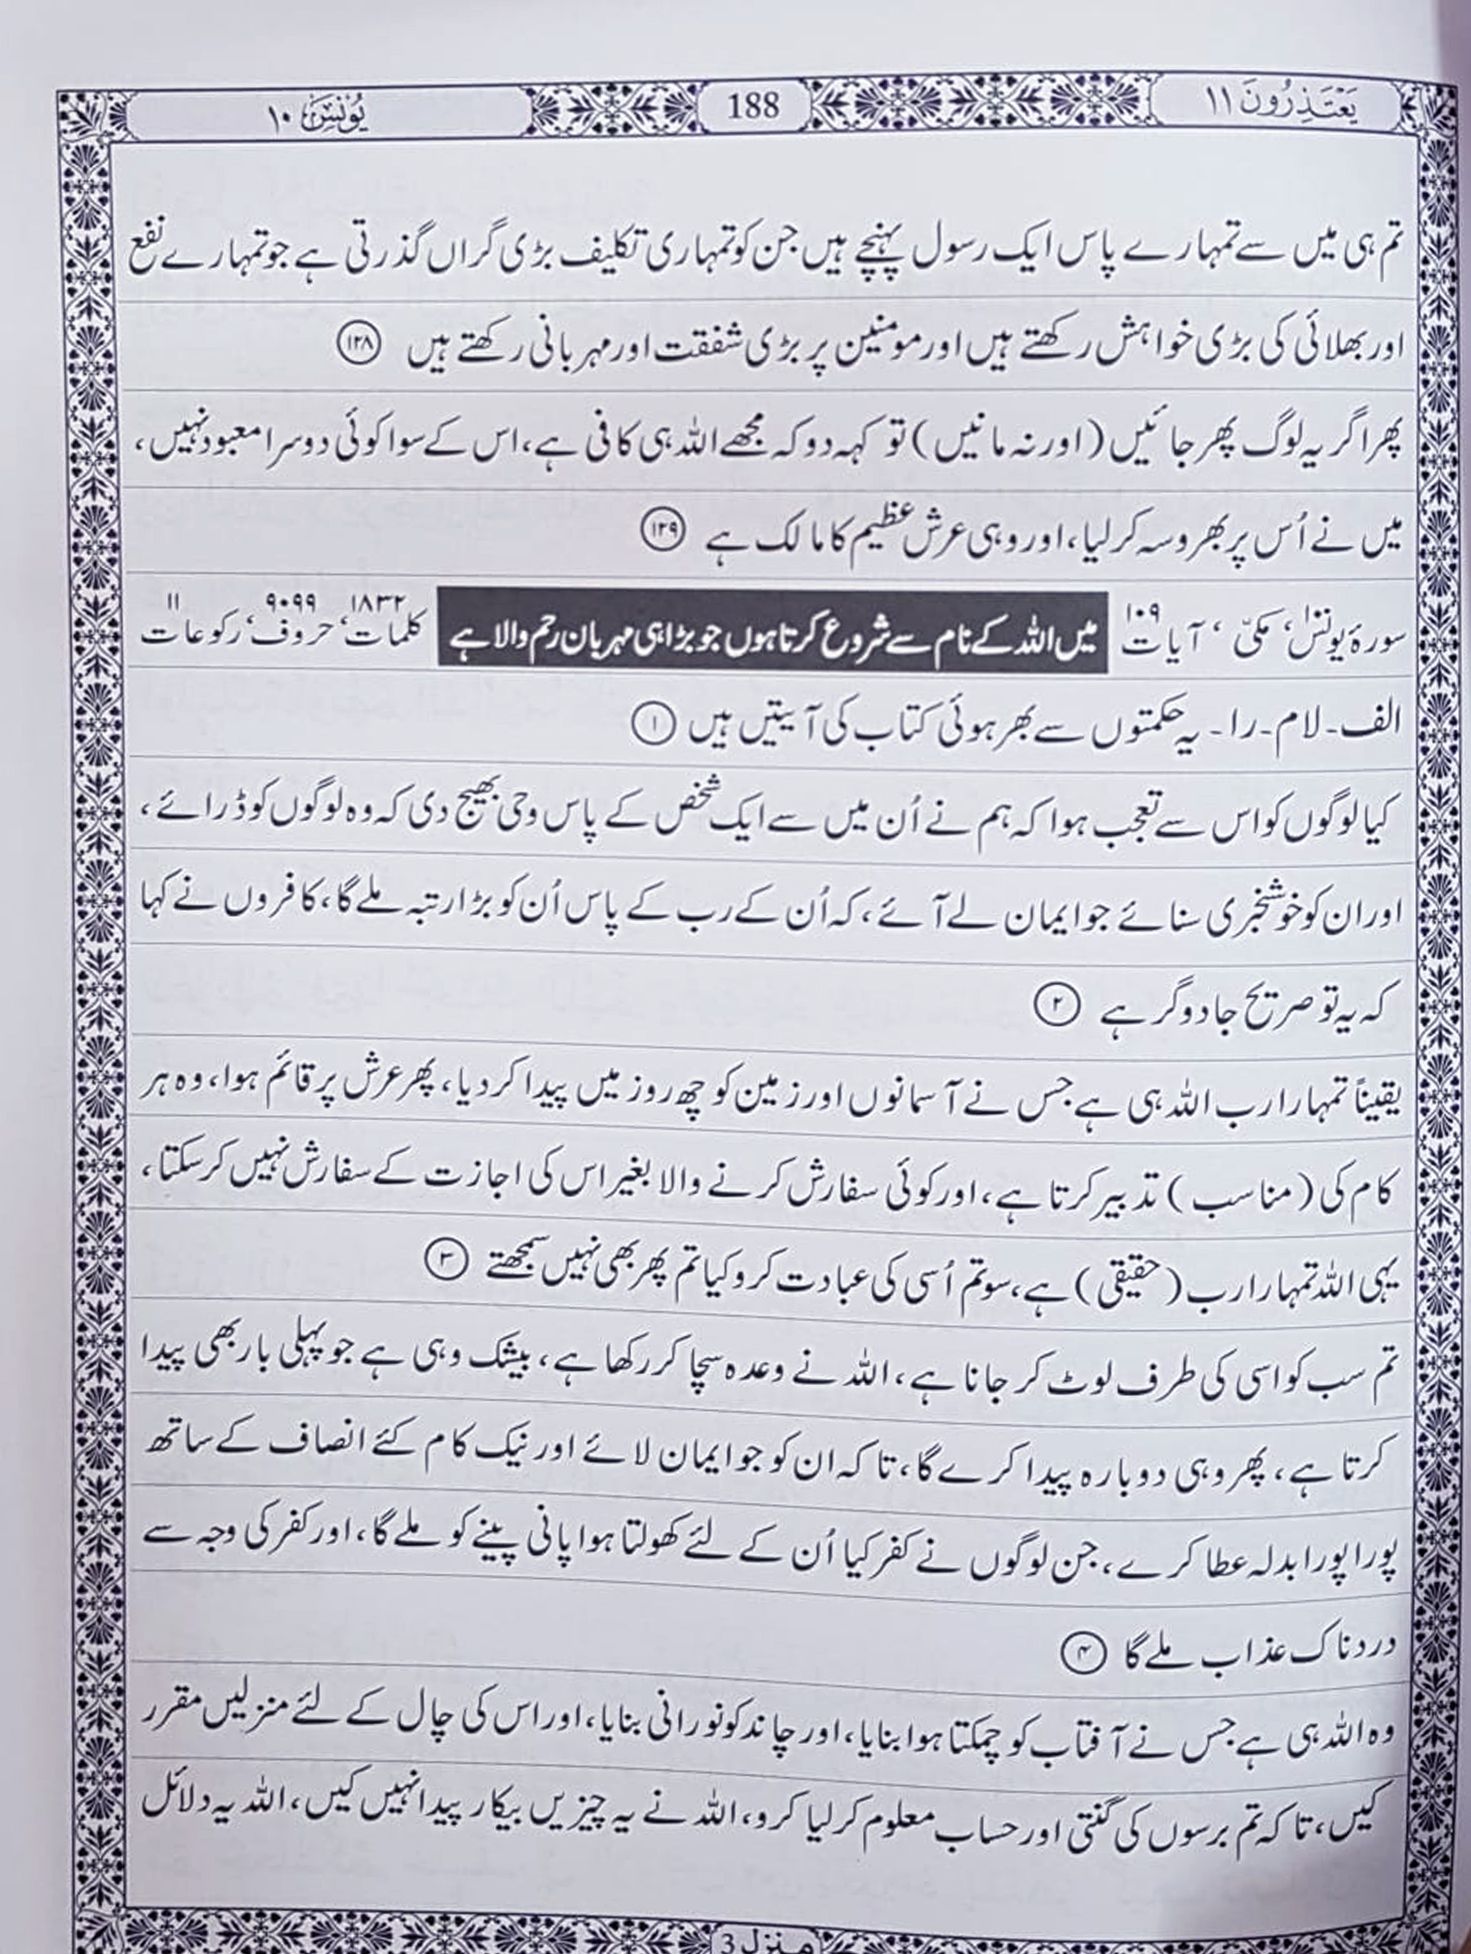 یَعْتَذِرُونَ ۱۱
188
یُونُسَ ۱۰
تم ہی میں سے تمہارے پاس ایک رسول پہنچے ہیں جن کو تمہاری تکلیف بڑی گراں گذرتی ہے جو تمہارے نفع
اور بھلائی کی بڑی خواہش رکھتے ہیں اور مومنین پر بڑی شفقت اور مہربانی رکھتے ہیں ۱۲۸
پھر اگر یہ لوگ پھر جائیں (اور نہ مانیں) تو کہہ دو کہ مجھے اللہ ہی کافی ہے، اس کے سوا کوئی دوسرا معبود نہیں،
میں نے اُس پر بھروسہ کر لیا، اور وہی عرش عظیم کا مالک ہے ۱۲۹
سورۂ یونس ۱۰، مکیّ، آیات ۱۰۹ میں اللہ کے نام سے شروع کرتا ہوں جو بڑا ہی مہربان رحم والا ہے کلمات ۱۸۳۲، حروف ۹۰۹۹، رکوعات ۱۱
الف۔ لام۔ را۔ یہ حکمتوں سے بھر ہوئی کتاب کی آیتیں ہیں ۱
کیا لوگوں کو اس سے تعجب ہوا کہ ہم نے اُن میں سے ایک شخص کے پاس وحی بھیج دی کہ وہ لوگوں کو ڈرائے،
اور ان کو خوشخبری سنائے جو ایمان لے آئے، کہ اُن کے رب کے پاس اُن کو بڑا رتبہ ملے گا، کافروں نے کہا
کہ یہ تو صریح جادوگر ہے ۲
یقیناً تمہارا رب اللہ ہی ہے جس نے آسمانوں اور زمین کو چھ روز میں پیدا کر دیا، پھر عرش پر قائم ہوا، وہ ہر
کام کی (مناسب) تدبیر کرتا ہے، اور کوئی سفارش کرنے والا بغیر اس کی اجازت کے سفارش نہیں کر سکتا،
یہی اللہ تمہارا رب (حقیقی) ہے، سو تم اُسی کی عبادت کرو کیا تم پھر بھی نہیں سمجھتے ۳
تم سب کو اسی کی طرف لوٹ کر جانا ہے، اللہ نے وعدہ سچا کر رکھا ہے، بیشک وہی ہے جو پہلی بار بھی پیدا
کرتا ہے، پھر وہی دوبارہ پیدا کرے گا، تا کہ ان کو جو ایمان لائے اور نیک کام کئے انصاف کے ساتھ
پورا پورا بدلہ عطا کرے، جن لوگوں نے کفر کیا اُن کے لئے کھولتا ہوا پانی پینے کو ملے گا، اور کفر کی وجہ سے
دردناک عذاب ملے گا ۴
وہ اللہ ہی ہے جس نے آفتاب کو چمکتا ہوا بنایا، اور چاند کو نورانی بنایا، اور اس کی چال کے لئے منزلیں مقرر
کیں، تا کہ تم برسوں کی گنتی اور حساب معلوم کر لیا کرو، اللہ نے یہ چیزیں بیکار پیدا نہیں کیں، اللہ یہ دلائل
منزل 3